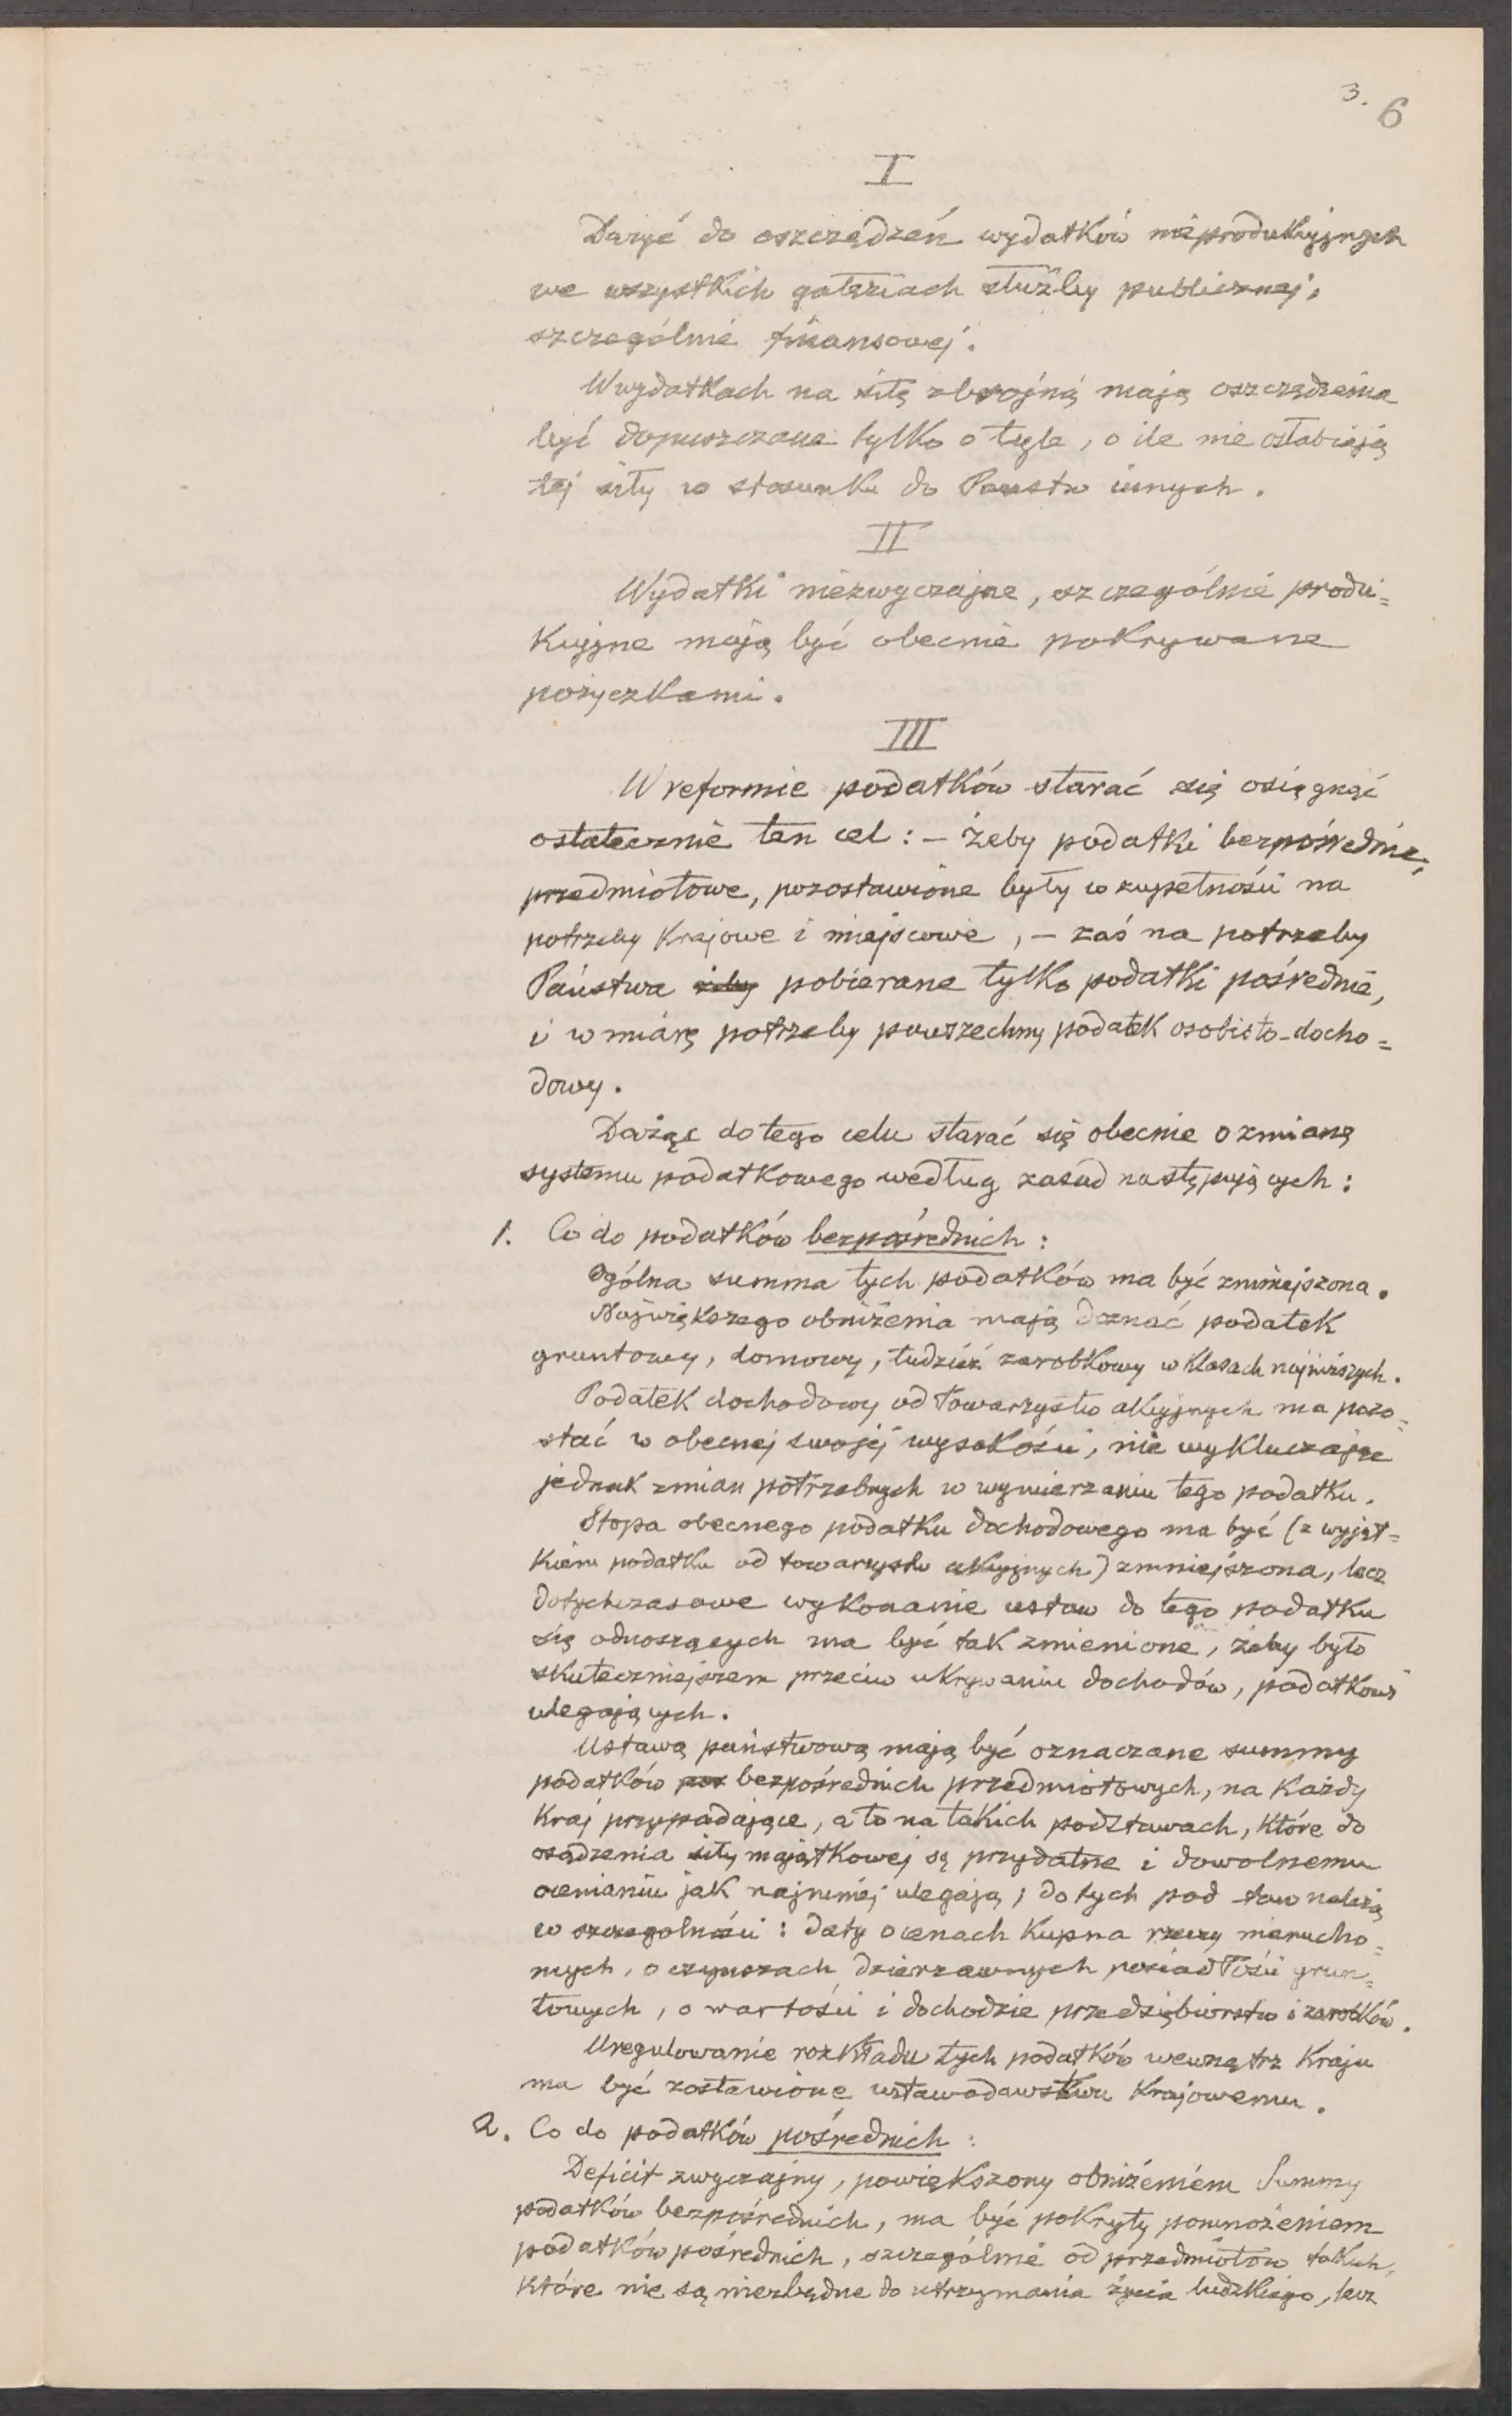 3. 6
I
Dążyć do oszczędzeń wydatków nieprodukcyjnych
we wszystkich gałęziach służby publicznej,
szczególnie finansowej.
W wydatkach na siłę zbrojną mają oszczędzenia
być dopuszczane tylko o tyle, o ile nie osłabiają
tej siły w stosunku do Państw innych.
II
Wydatki niezwyczajne, szczególnie produ=
kcyjne mają być obecnie pokrywane
pożyczkami.
III
W reformie podatków starać się osięgnąć
ostatecznie ten cel: – żeby podatki bezpośrednie,
przedmiotowe, pozostawione były w zupełności na
potrzeby krajowe i miejscowe, – zaś na potrzeby
Państwa żeby pobierane tylko podatki pośrednie,
i w miarę potrzeby powszechny podatek osobisto-docho=
dowy.
Dążąc do tego celu starać się obecnie o zmianę
systemu podatkowego według zasad następujących:
1. Co do podatków bezpośrednich:
Ogólna summa tych podatków ma być zmniejszona.
Największego obniżenia mają doznać podatek
gruntowy, domowy, tudzież zarobkowy w klasach najniższych.
Podatek dochodowy od towarzystw akcyjnych ma pozo=
stać w obecnej swojej wysokości, nie wykluczając
jednak zmian potrzebnych w wymierzaniu tego podatku.
Stopa obecnego podatku dochodowego ma być (z wyjąt=
kiem podatku od towarzystw akcyjnych) zmniejszona, lecz
dotychczasowe wykonanie ustaw do tego podatku
się odnoszących ma być tak zmienione, żeby było
skuteczniejszem przeciw ukrywaniu dochodów, podatkowi
ulegających.
Ustawą państwową mają być oznaczane summy
podatków pos bezpośrednich przedmiotowych, na każdy
kraj przypadające, a to na takich podstawach, które do
osądzenia siły majątkowej są przydatne i dowolnemu
ocenianiu jak najmniej ulegają; do tych pod staw należą
w szczególności: daty o cenach kupna rzeczy nierucho=
mych, o czynszach dzierżawnych posiadłości grun=
towych, o wartości i dochodzie przedsiębiorstw i zarobków.
Uregulowanie rozkładu tych podatków wewnątrz kraju
ma być zostawione ustawodawstwu krajowemu.
2. Co do podatków pośrednich:
Deficit zwyczajny, powiększony obniżeniem Summy
podatków bezpośrednich, ma być pokryty pomnożeniem
podatków pośrednich, szczególnie od przedmiotów takich,
które nie są niezbędne do utrzymania życia ludzkiego, lecz